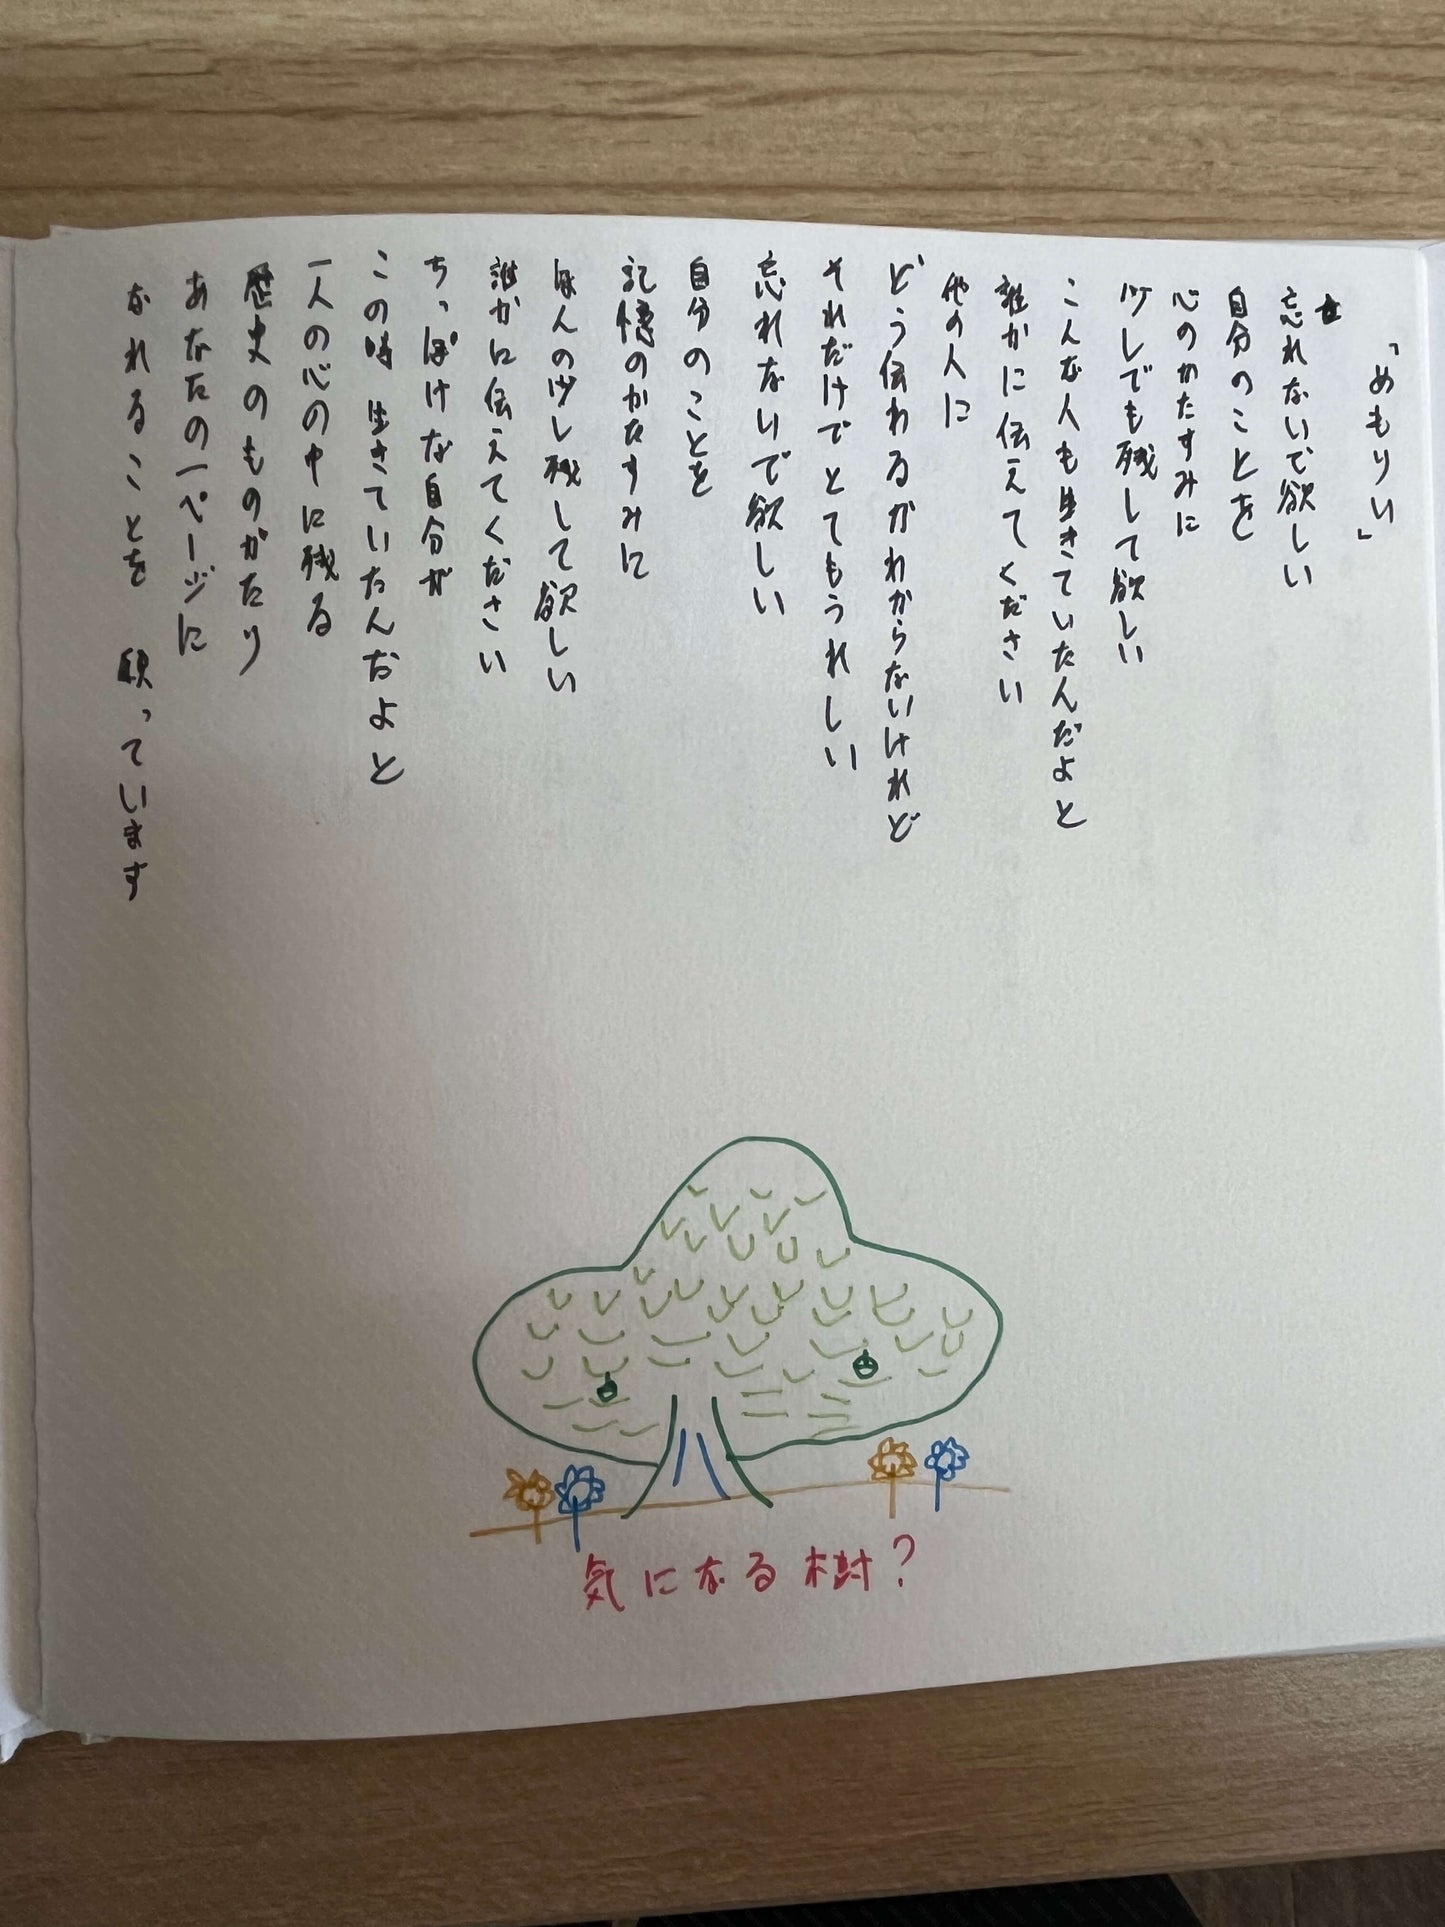 「めもりい」
忘れないで欲しい
自分のことを
心のかたすみに
少しでも残して欲しい
こんな人も生きていたんだよと
誰かに伝えてください
他の人に
どう伝わるがわからないけれど
それだけでとてもうれしい
忘れないで欲しい
自分のことを
記憶のかたすみに
ほんの少し残して欲しい
誰かに伝えてください
ちっぽけな自分が
この時 生きていたんだよと
一人の心の中に残る
歴史のものがたり
あなたの一ページに
なれることを 願っています
気になる樹?